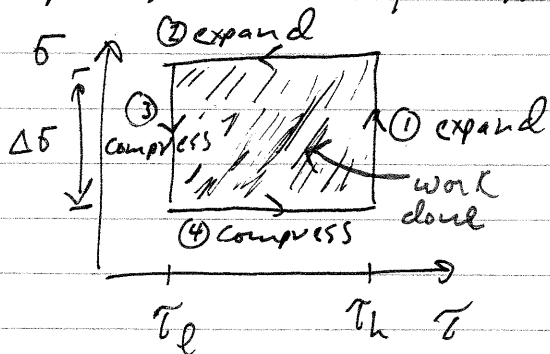 ② expand
σ
③
compress
① expand
Δσ
work
done
④ compress
τₗ
τₕ
τ